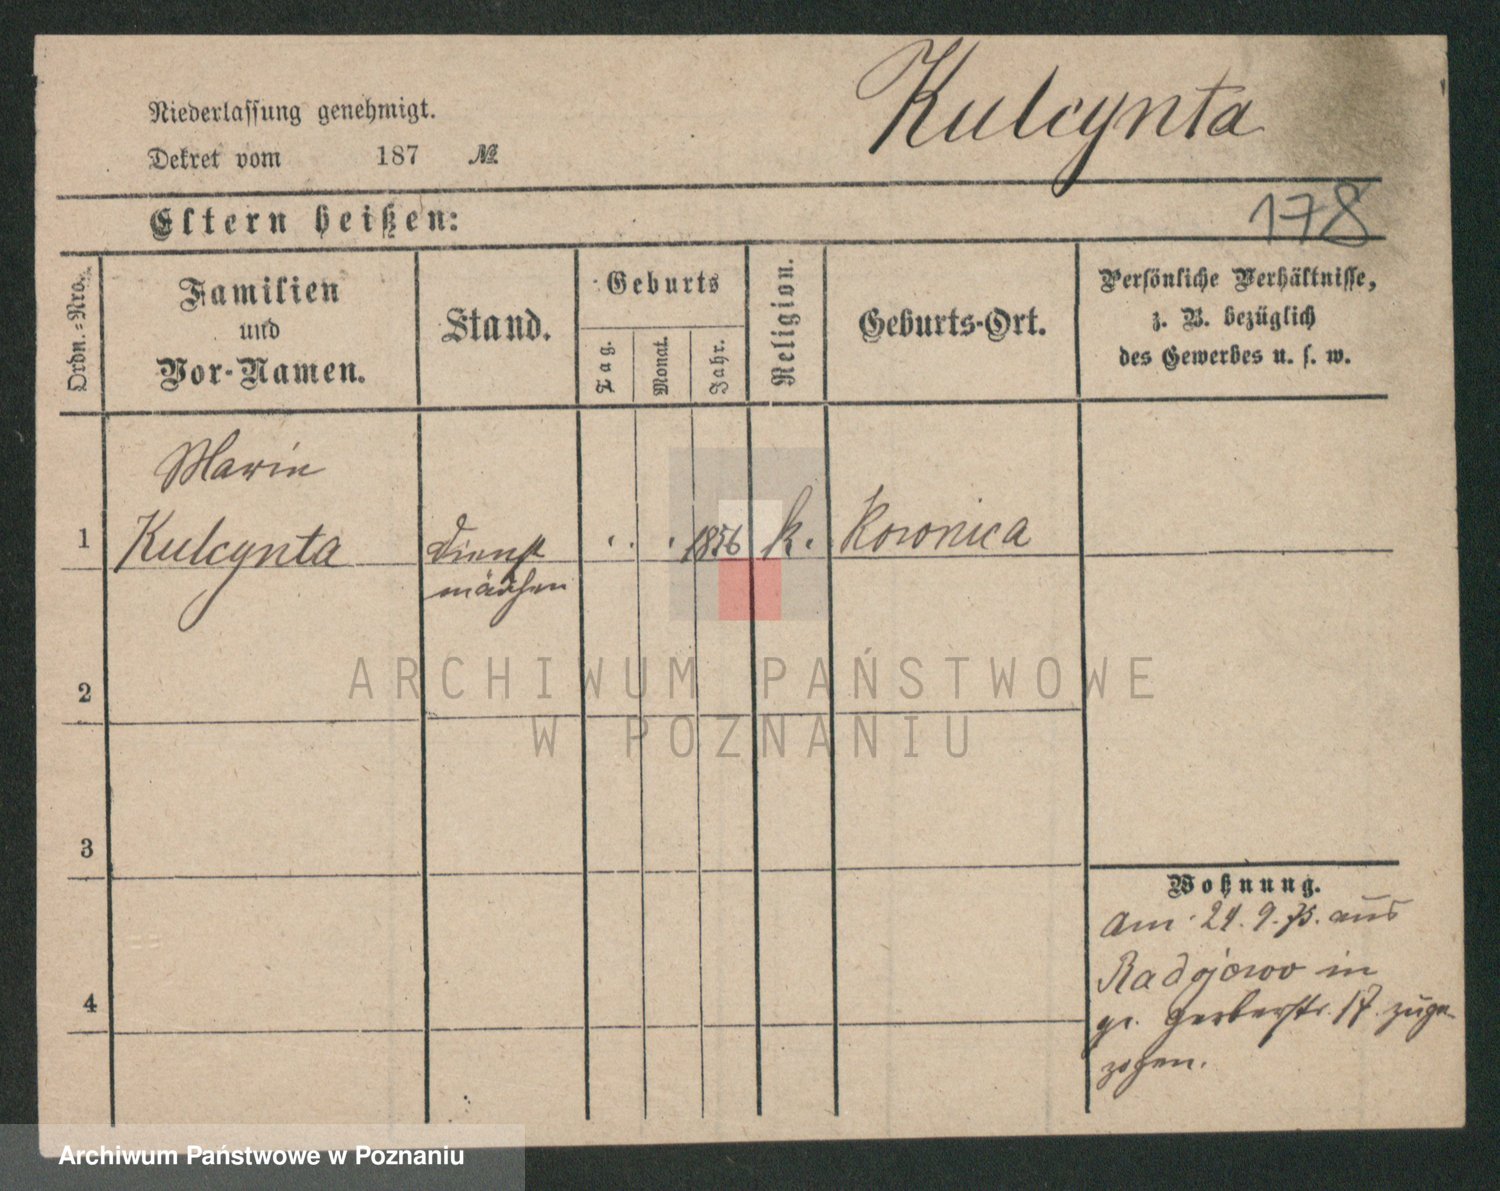 Kulcynta
Niederlassung genehmigt.
Dekret vom 187 №
178
Eltern heißen:
Ordn.=Nro.
Familien
und
Vor-Namen.
Stand.
Geburts
Tag.
Monat.
Jahr.
Religion.
Geburts-Ort.
Persönliche Verhältnisse,
z. B. bezüglich
des Gewerbes u. s. w.
Marie
1 Kulcynta Dienst . . . 1856 k. Koronica
mädchen
ARCHIWUM PAŃSTWOWE
2
W POZNANIU
3
Wohnung.
Am 24. 9. 75. aus
Radojewo in
4
gr. Gerberstr. 17. zuge-
zogen.
Archiwum Państwowe w Poznaniu